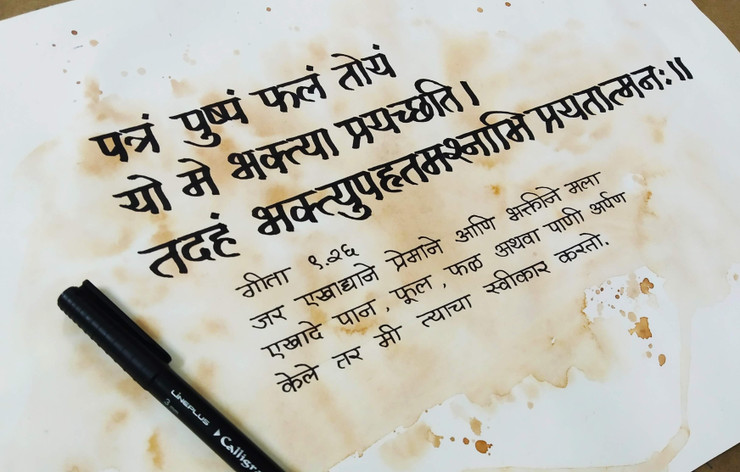 पत्रं पुष्पं फलं तोयं
यो मे भक्त्या प्रयच्छति।
तदहं भक्त्युपहृतमश्नामि प्रयतात्मनः॥
गीता ९.२६
जर एखाद्याने प्रेमाने आणि भक्तीने मला
एखादे पान, फूल, फळ अथवा पाणी अर्पण
केले तर मी त्याचा स्वीकार करतो.
LINEPLUS
Calligr